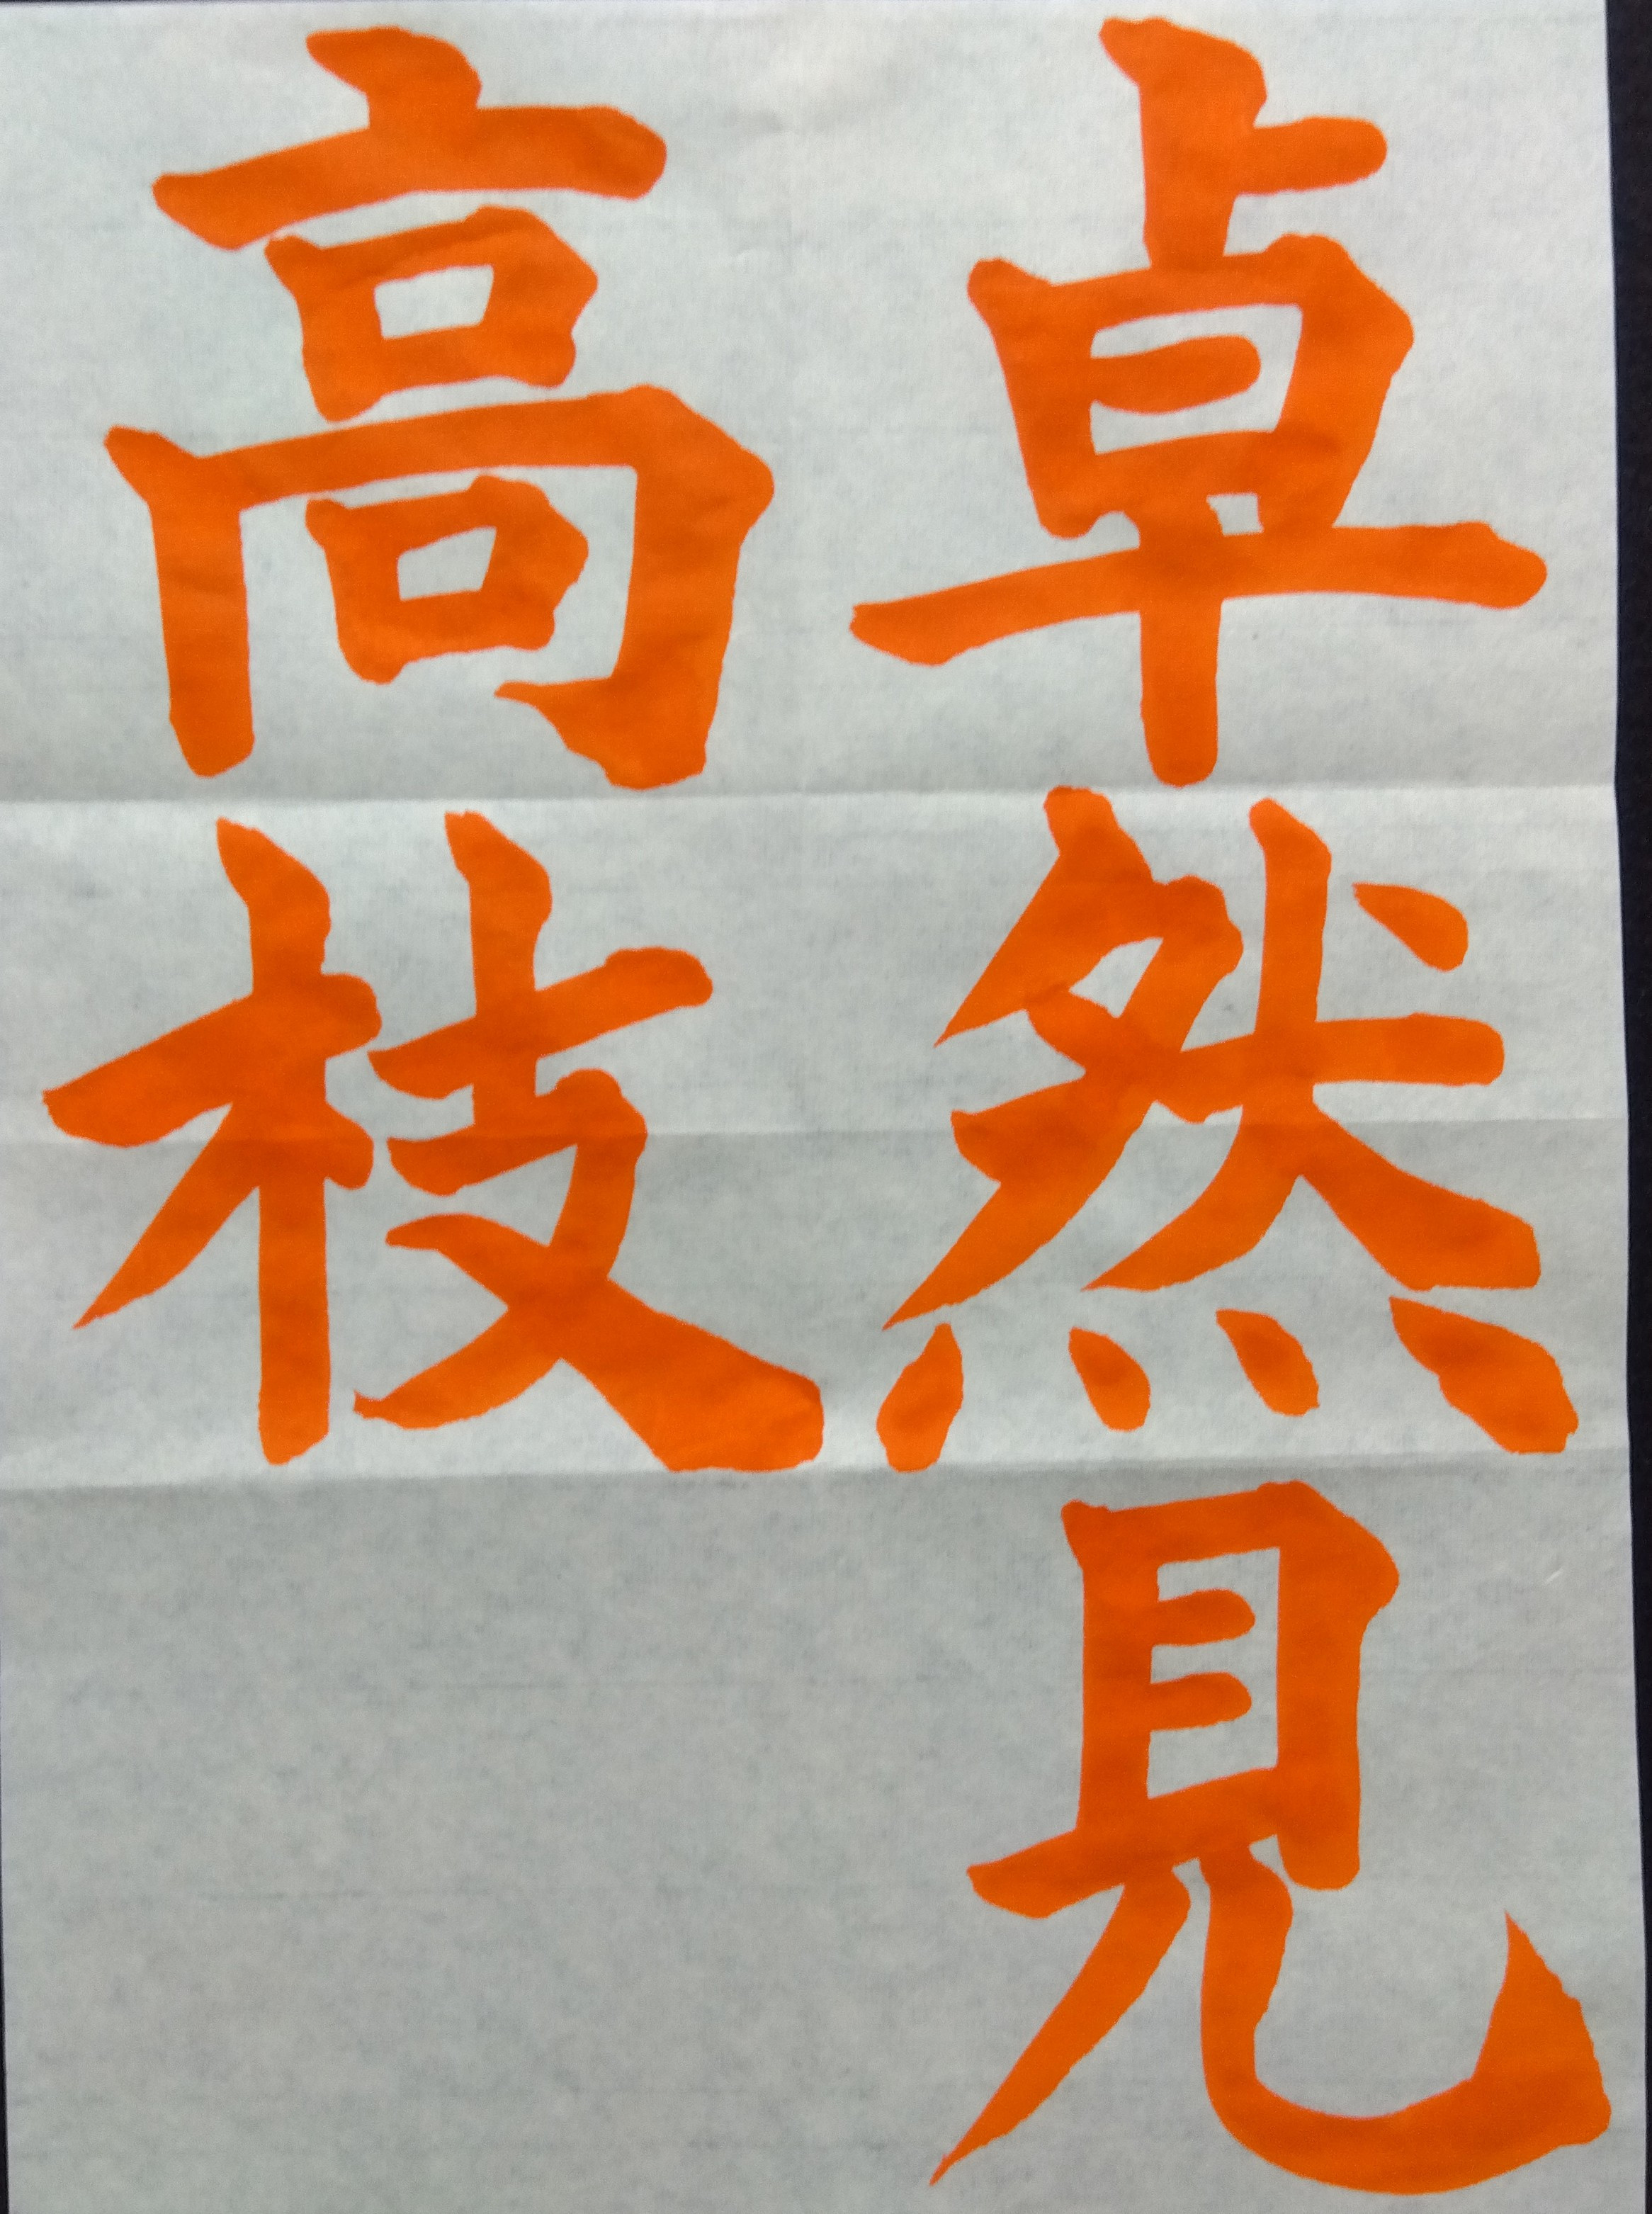 卓然見
高枝